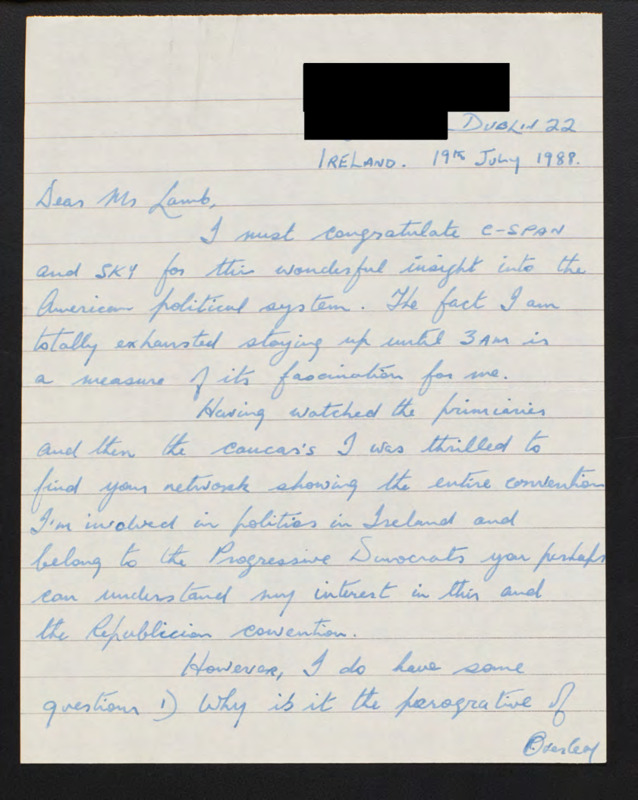 DUBLIN 22
IRELAND. 19th July 1988.
Dear Mr Lamb,
I must congratulate C-SPAN
and SKY for this wonderful insight into the
American political system. The fact I am
totally exhausted staying up until 3AM is
a measure of its fascination for me.
Having watched the primciaries
and then the caucas's I was thrilled to
find your network showing the entire convention
I'm involved in politics in Ireland and
belong to the Progressive Democrats you perhaps
can understand my interest in this and
the Republician convention.
However, I do have some
questions 1) Why is it the perogrative of
Overleaf